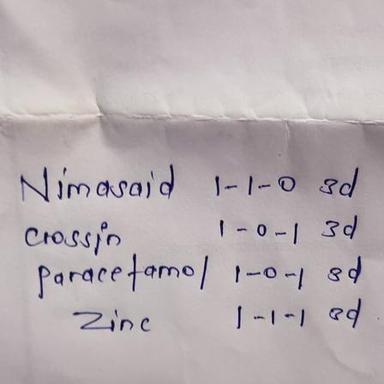 Nimasaid 1-1-0 3d
crossin 1-0-1 3d
paracetamol 1-0-1 3d
Zinc 1-1-1 3d